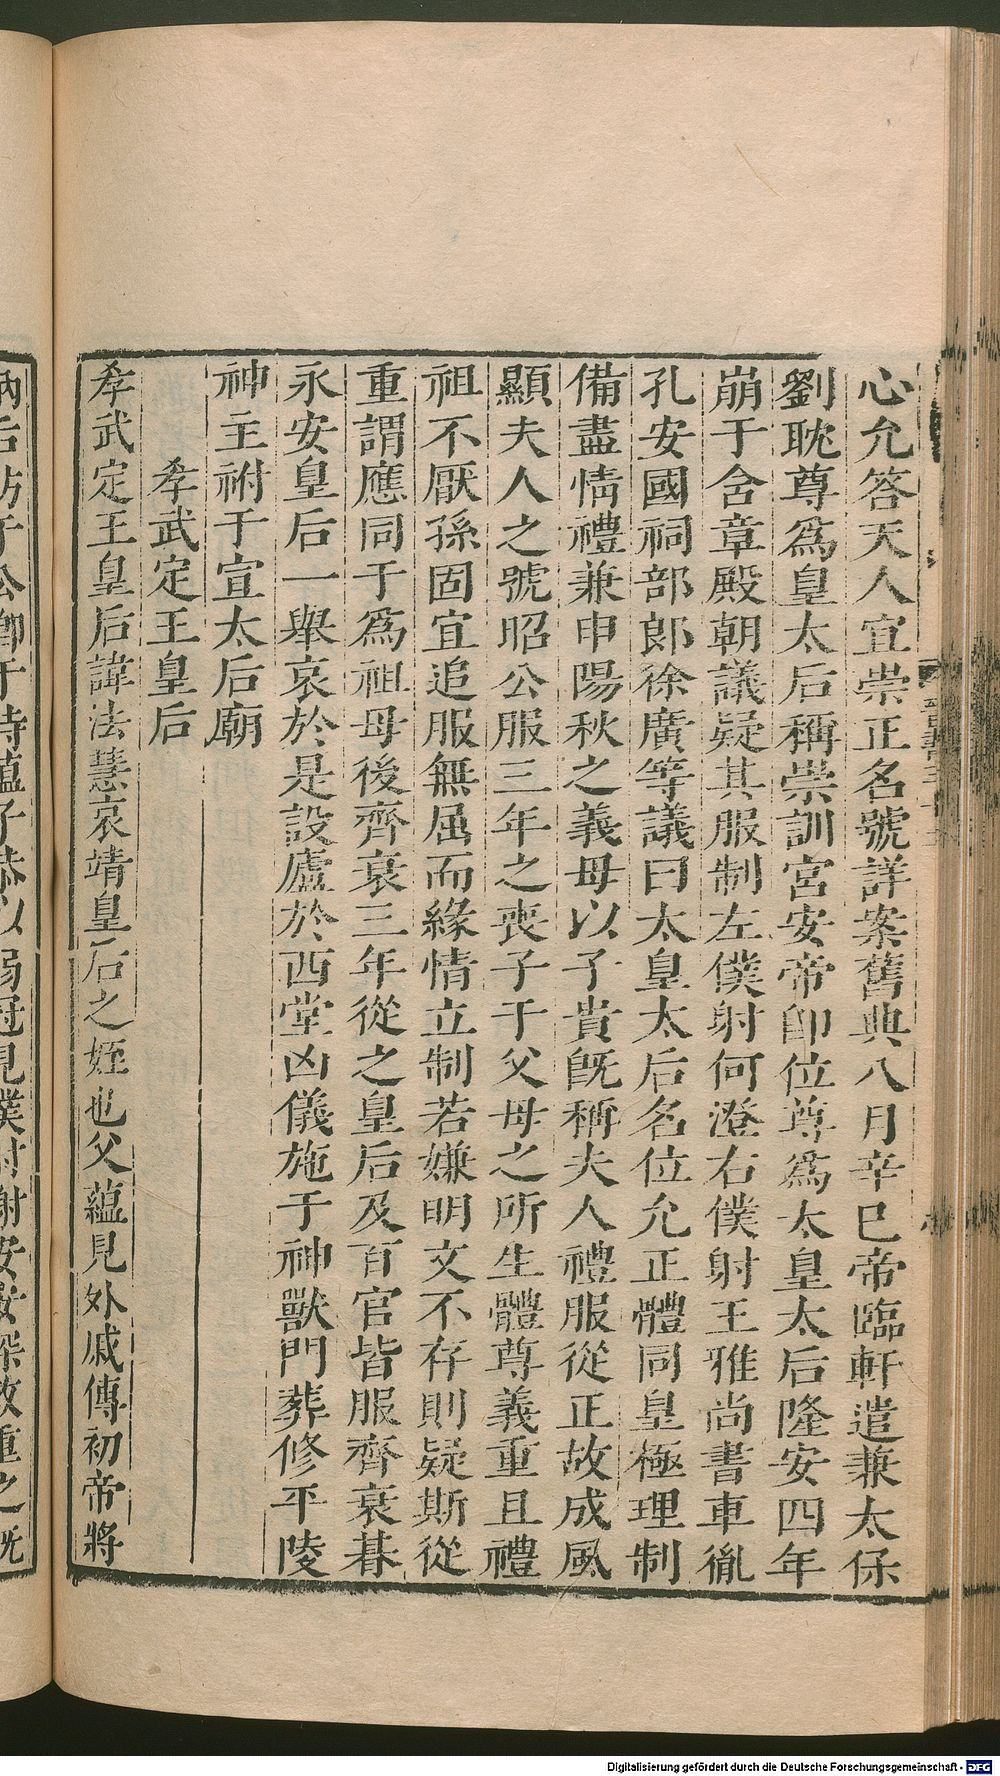 心允答天人宜崇正名號詳案舊典八月辛巳帝臨軒遣兼太保
劉耽尊爲皇太后稱崇訓宮安帝卽位尊爲太皇太后隆安四年
崩于含章殿朝議疑其服制左僕射何澄右僕射王雅尚書車胤
孔安國祠部郎徐廣等議曰太皇太后名位允正體同皇極理制
備盡情禮兼申陽秋之義母以子貴旣稱夫人禮服從正故成風
顯夫人之號昭公服三年之喪子于父母之所生體尊義重且禮
祖不厭孫固宜追服無屈而緣情立制若嫌明文不存則疑斯從
重謂應同于爲祖母後齊衰三年從之皇后及百官皆服齊衰朞
永安皇后一舉哀於是設廬於西堂凶儀施于神獸門葬修平陵
神主祔于宣太后廟
孝武定王皇后
孝武定王皇后諱法慧哀靖皇后之姪也父蘊見外戚傳初帝將
納后訪于公卿于時蘊子恭以弱冠見僕射謝安安深敬重之旣
Digitalisierung gefördert durch die Deutsche Forschungsgemeinschaft - DFG